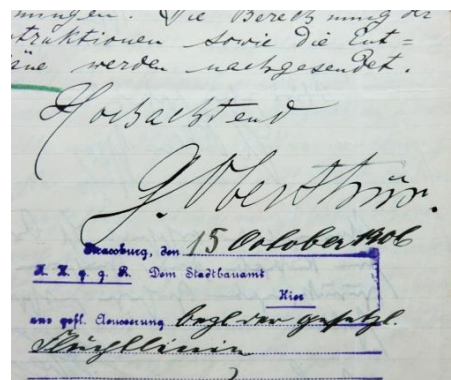 nungen. Die Berechnung der
struktionen sowie die Ent=
äne werden nachgesendet.
Hochachtend
G. Oberthür.
Strassburg, den 15 October 1906
Dem Stadtbauamt
Hier
aus gefl. Aeusserung bezl. der gesetzl.
Fluchtlinie